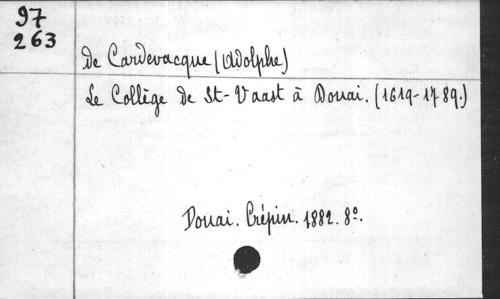 97
263
de Cardevacque (Adolphe)
Le Collège de St-Vaast à Douai. (1619-1789.)
Douai. Crépin. 1882. 8º.